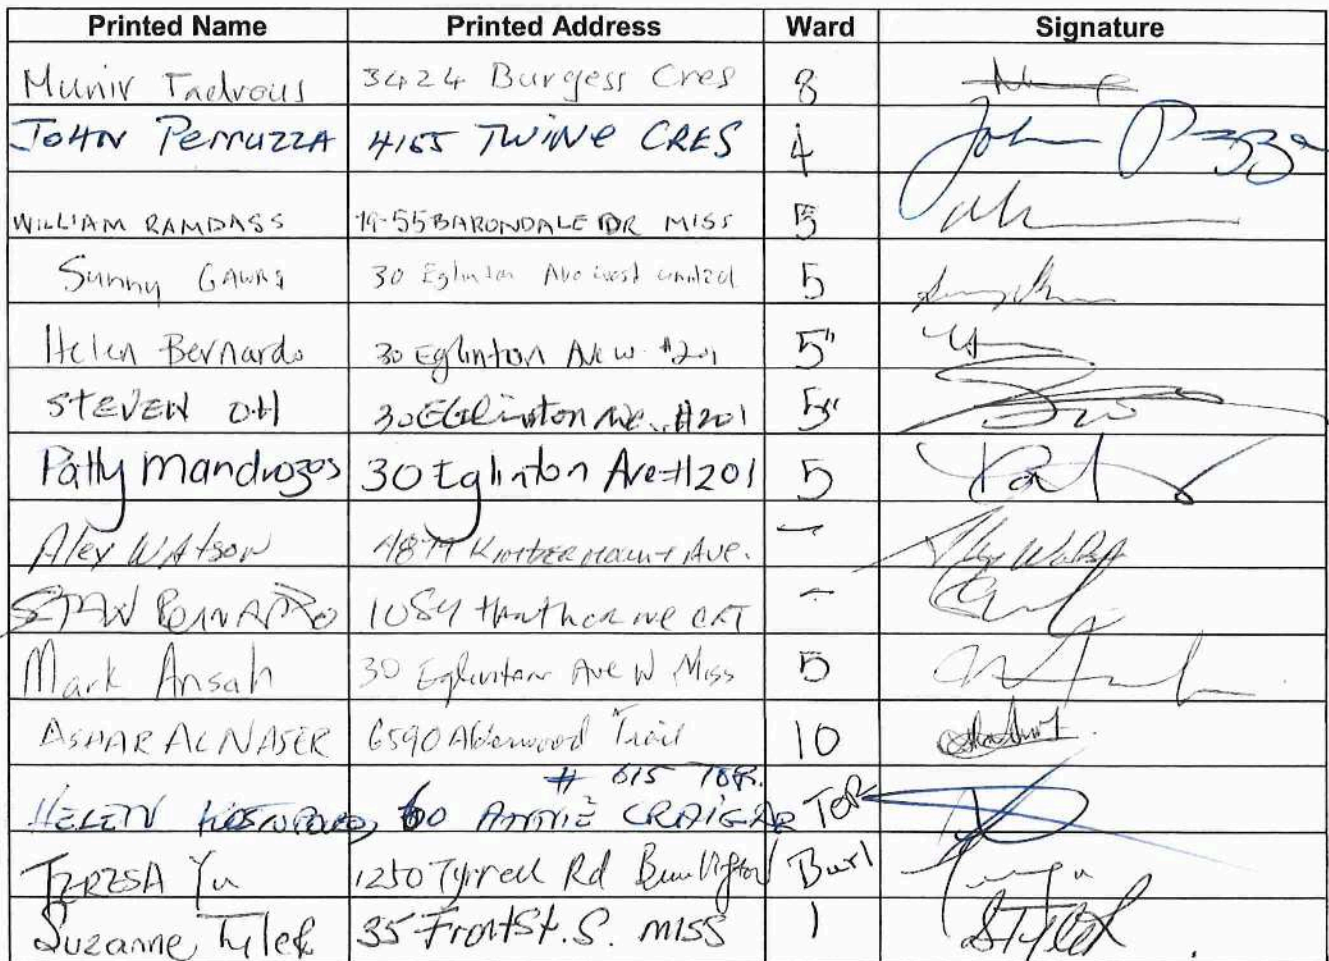 Printed Name Printed Address Ward Signature
Munir Tadrous 3424 Burgess Cres 8
JOHN PERRUZZA 4155 TWINE CRES 4 John
WILLIAM RAMDASS 19-55 BARONDALE DR MISS 5
Sunny 30 Eglinton Ave west 5
Helen Bernardo 30 Eglinton Ave W. #201 5
STEVEN OH 30 Eglinton Ave. #201 5
Patty Mandrozos 30 Eglinton Ave #201 5
Alex Watson Ave. - Alex Watson
1084 -
Mark Ansah 30 Eglinton Ave W Miss 5
ASHAR ALNASER 6590 Alderwood Trail 10
# 615 TOR.
HELEN 60 ANNIE CRAIG DR TOR
TERESA Yu 1250 Tyrrell Rd Burlington Burl
Suzanne Tyler 35 Front St. S. MISS 1 STyler